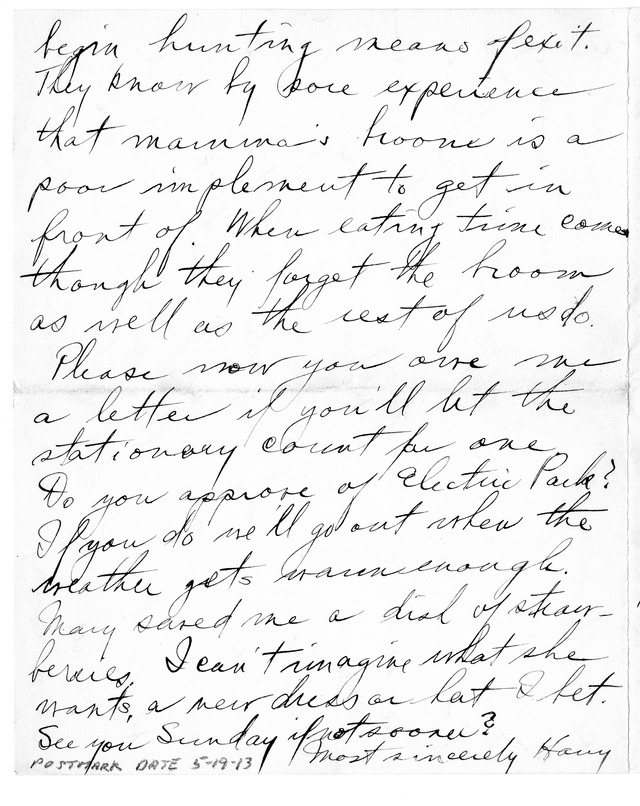 begin hunting means of exit.
They know by sore experience
that mamma's broom is a
poor implement to get in
front of. When eating time comes
though they forget the broom
as well as the rest of us do.
Please now you owe me
a letter if you'll let the
stationary count for one.
Do you approve of Electric Park?
If you do we'll go out when the
weather gets warm enough.
Mary saved me a dish of straw-
berries. I can't imagine what she
wants, a new dress or hat I bet.
See you Sunday if not sooner?
Most sincerely Harry
POSTMARK DATE 5-19-13